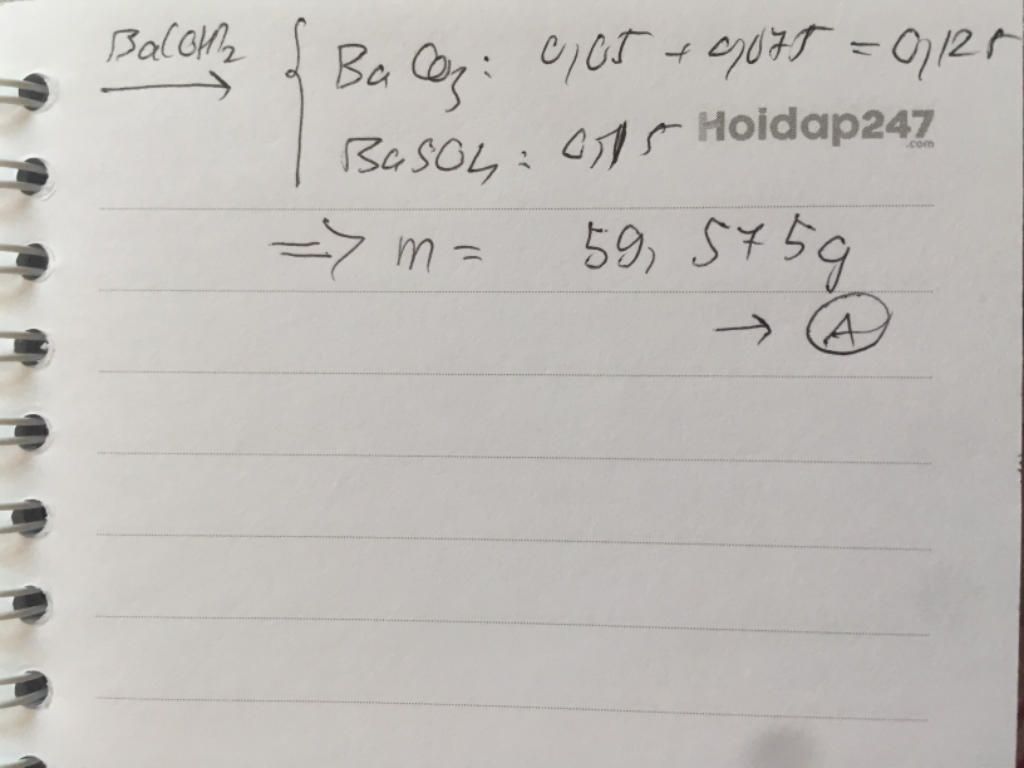 Ba(OH)2
→ { BaCO3 : 0,05 + 0,075 = 0,125
BaSO4 : 0,15
Hoidap247
.com
=> m = 59,575g
→ A